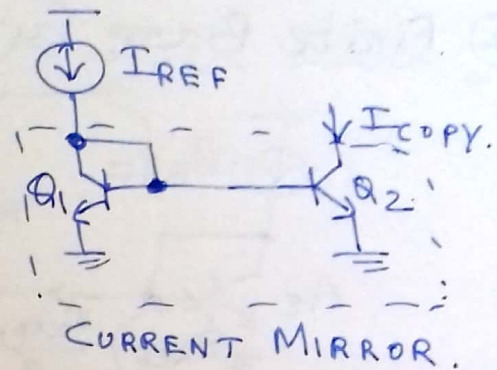 IREF
ICOPY.
Q1
Q2
CURRENT MIRROR.